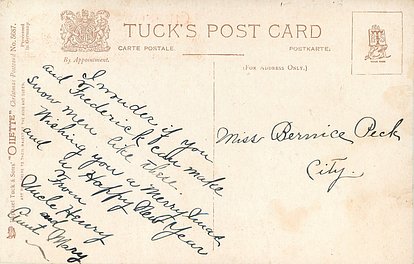 TUCK'S POST CARD
CARTE POSTALE
POSTKARTE.
By Appointment.
(FOR ADDRESS ONLY.)
I wonder if you
and Frederick can make
snow men like these.
Wishing you a merry Xmas
and a Happy New Year
From
Uncle Henry
and
Aunt Mary
Miss Bernice Peck
City.
Raphael Tuck & Sons' "OILETTE"